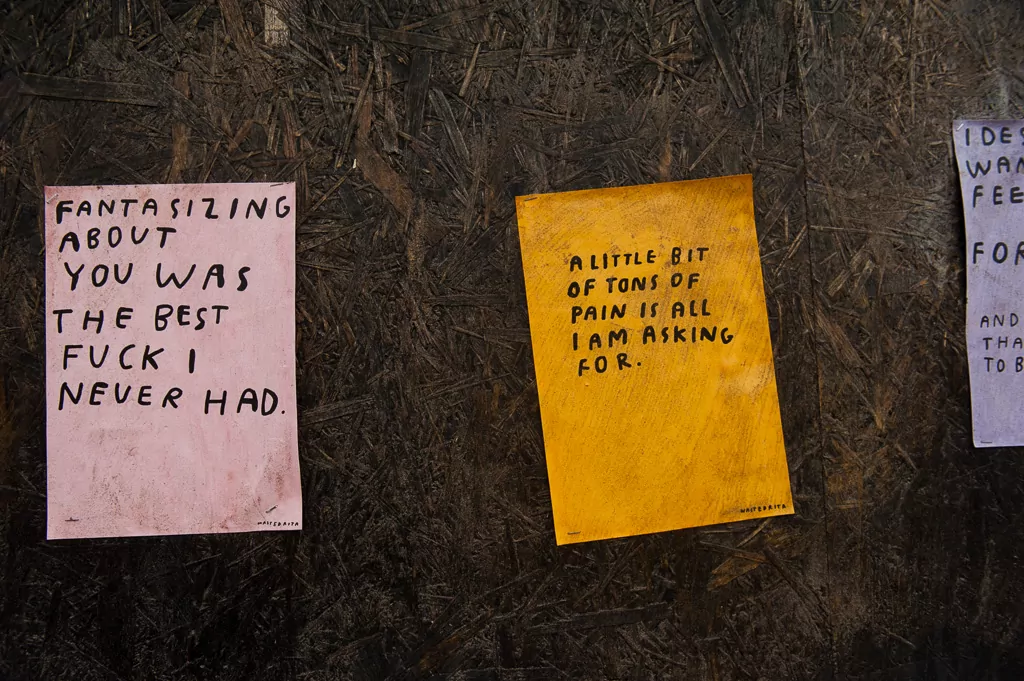 FANTASIZING
ABOUT
YOU WAS
THE BEST
FUCK I
NEVER HAD.
A LITTLE BIT
OF TONS OF
PAIN IS ALL
I AM ASKING
FOR.
I
WAN
FEE
FOR
AND
THA
TO B